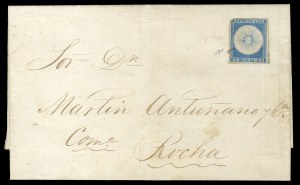 Sor. Dn
Martin Antuñano y Ca.
Come.
Rocha